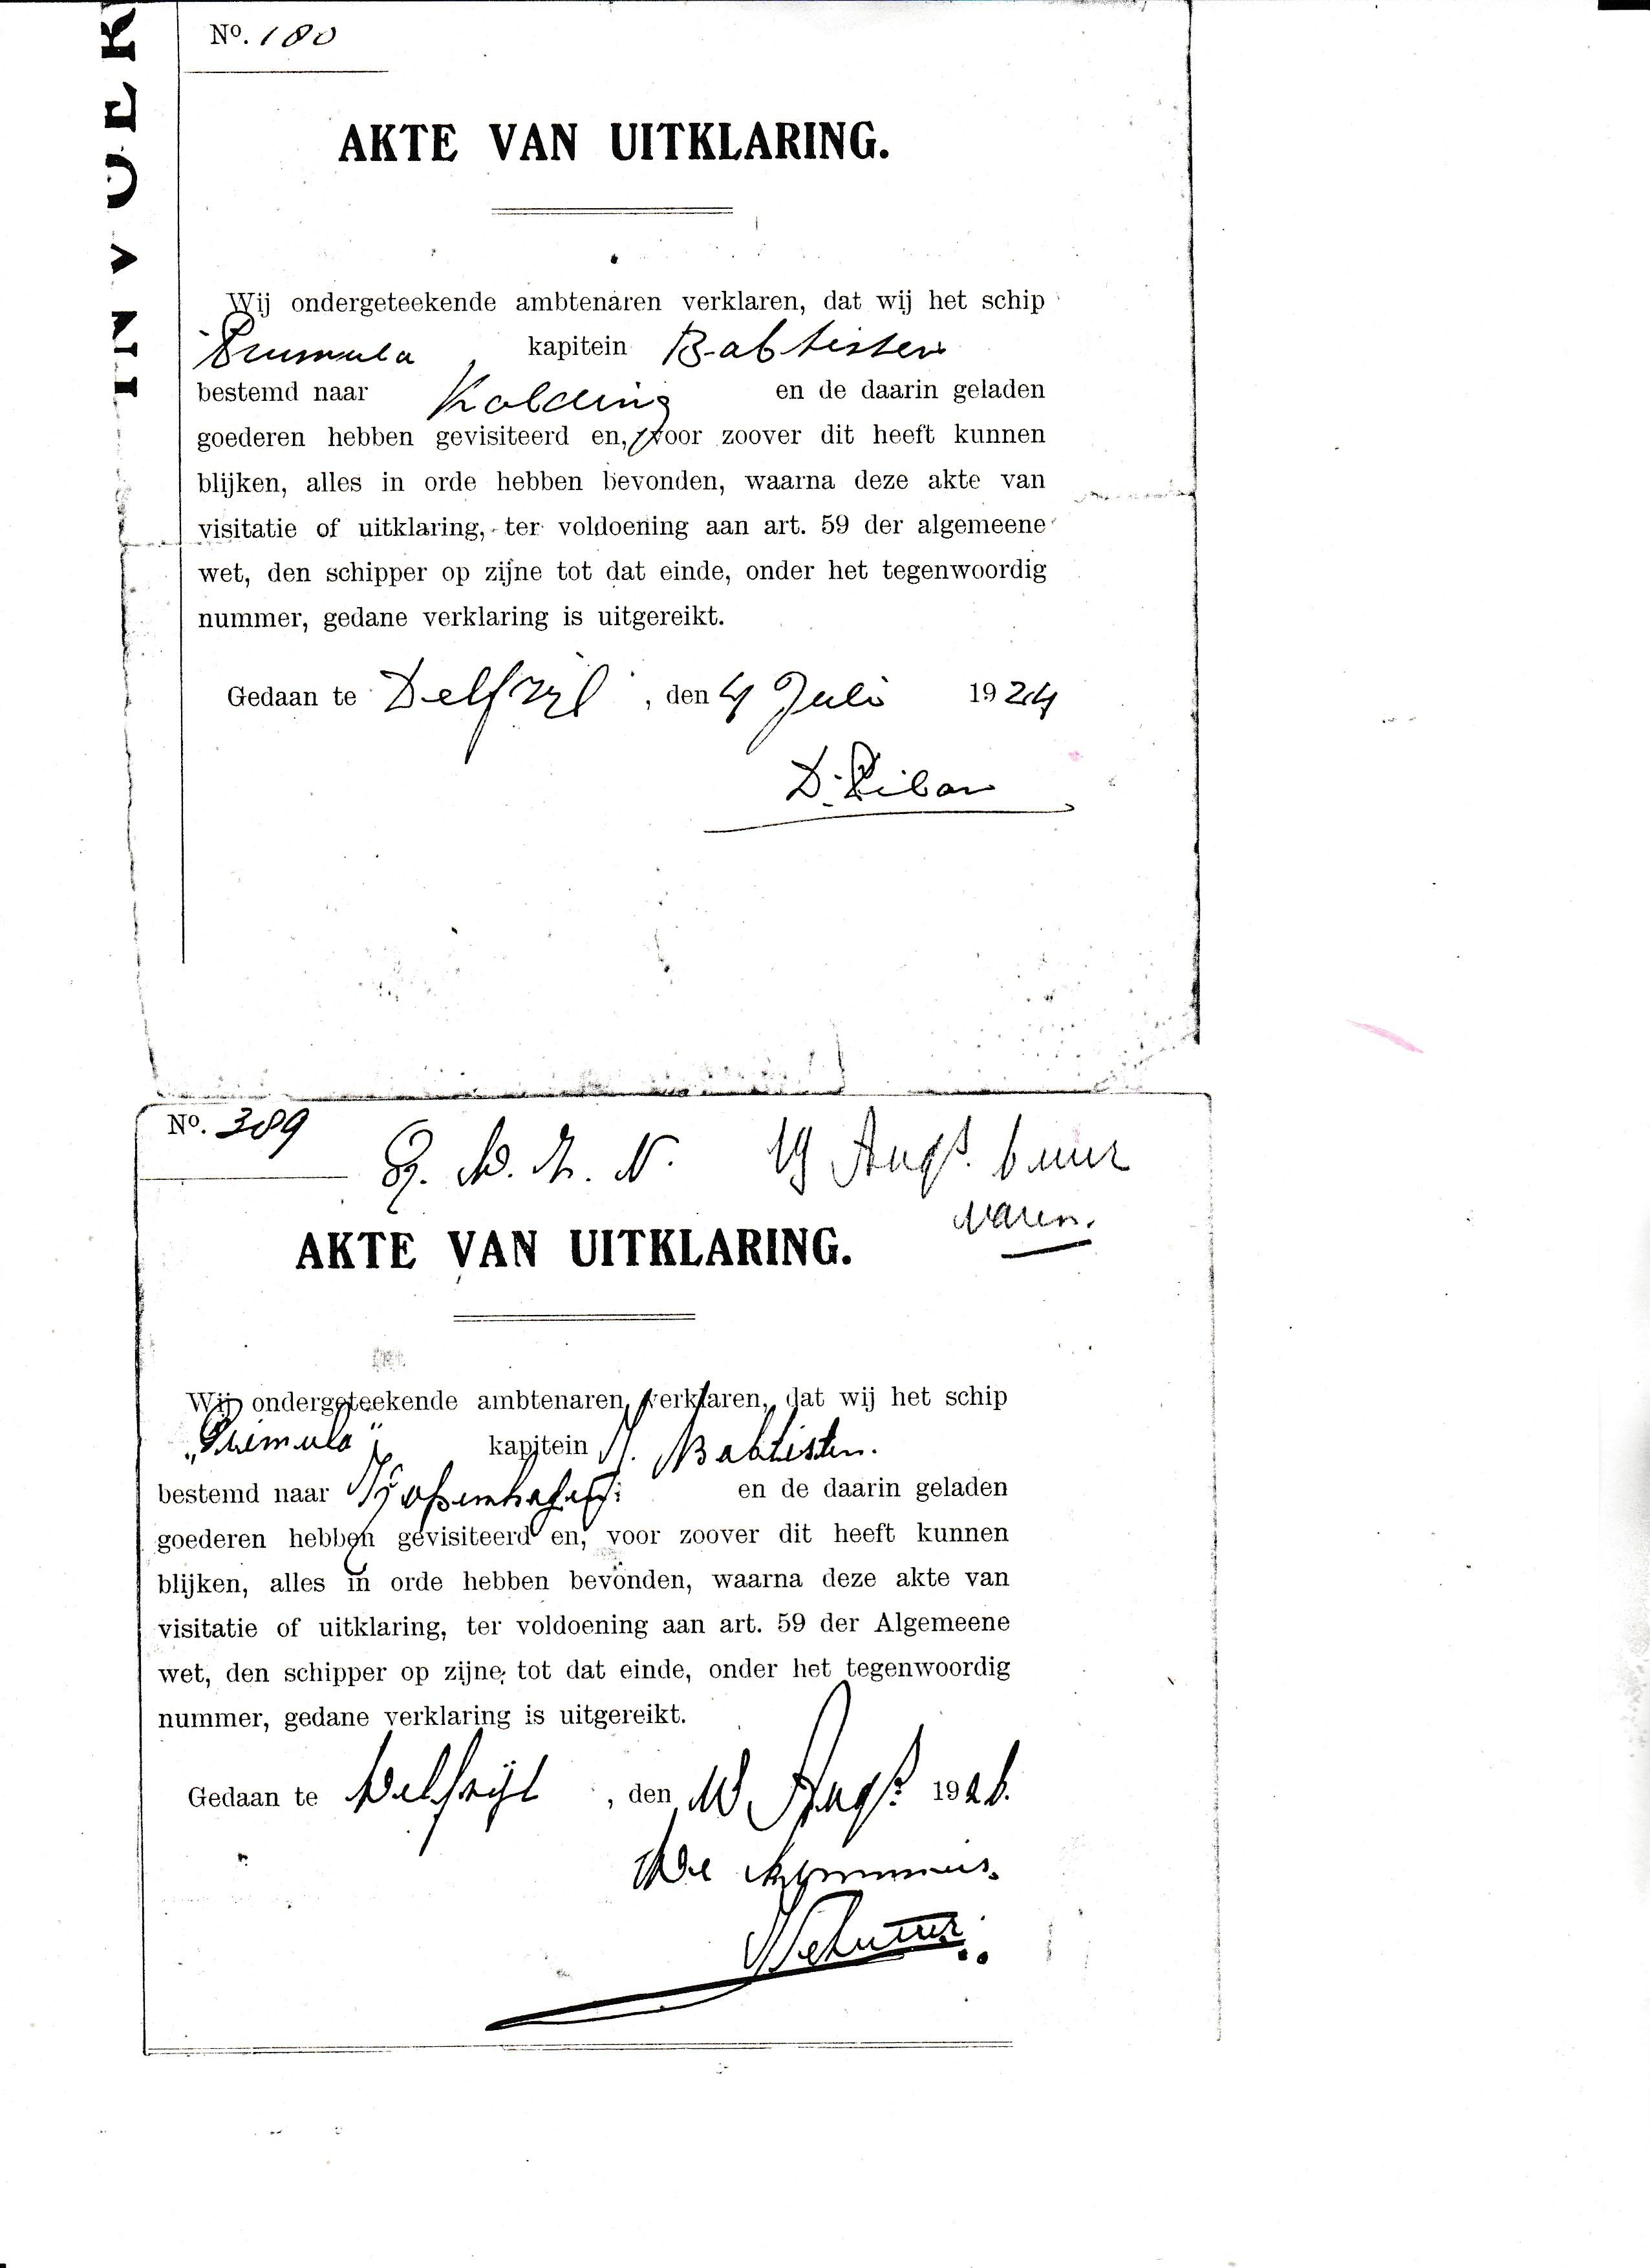 INVOER
No. 180
AKTE VAN UITKLARING.
Wij ondergeteekende ambtenaren verklaren, dat wij het schip
Primula, kapitein Babtisten
bestemd naar Kolding en de daarin geladen
goederen hebben gevisiteerd en, voor zoover dit heeft kunnen
blijken, alles in orde hebben bevonden, waarna deze akte van
visitatie of uitklaring, ter voldoening aan art. 59 der algemeene
wet, den schipper op zijne tot dat einde, onder het tegenwoordig
nummer, gedane verklaring is uitgereikt.
Gedaan te Delfzijl, den 4 Juli 1924
D.
No. 389
19 Augs. 6 uur
varen.
AKTE VAN UITKLARING.
Wij ondergeteekende ambtenaren verklaren, dat wij het schip
„Primula", kapitein Babtisten.
bestemd naar en de daarin geladen
goederen hebben gevisiteerd en, voor zoover dit heeft kunnen
blijken, alles in orde hebben bevonden, waarna deze akte van
visitatie of uitklaring, ter voldoening aan art. 59 der Algemeene
wet, den schipper op zijne tot dat einde, onder het tegenwoordig
nummer, gedane verklaring is uitgereikt.
Gedaan te Delfzijl, den 18 Augs. 1926.
De Kommies.